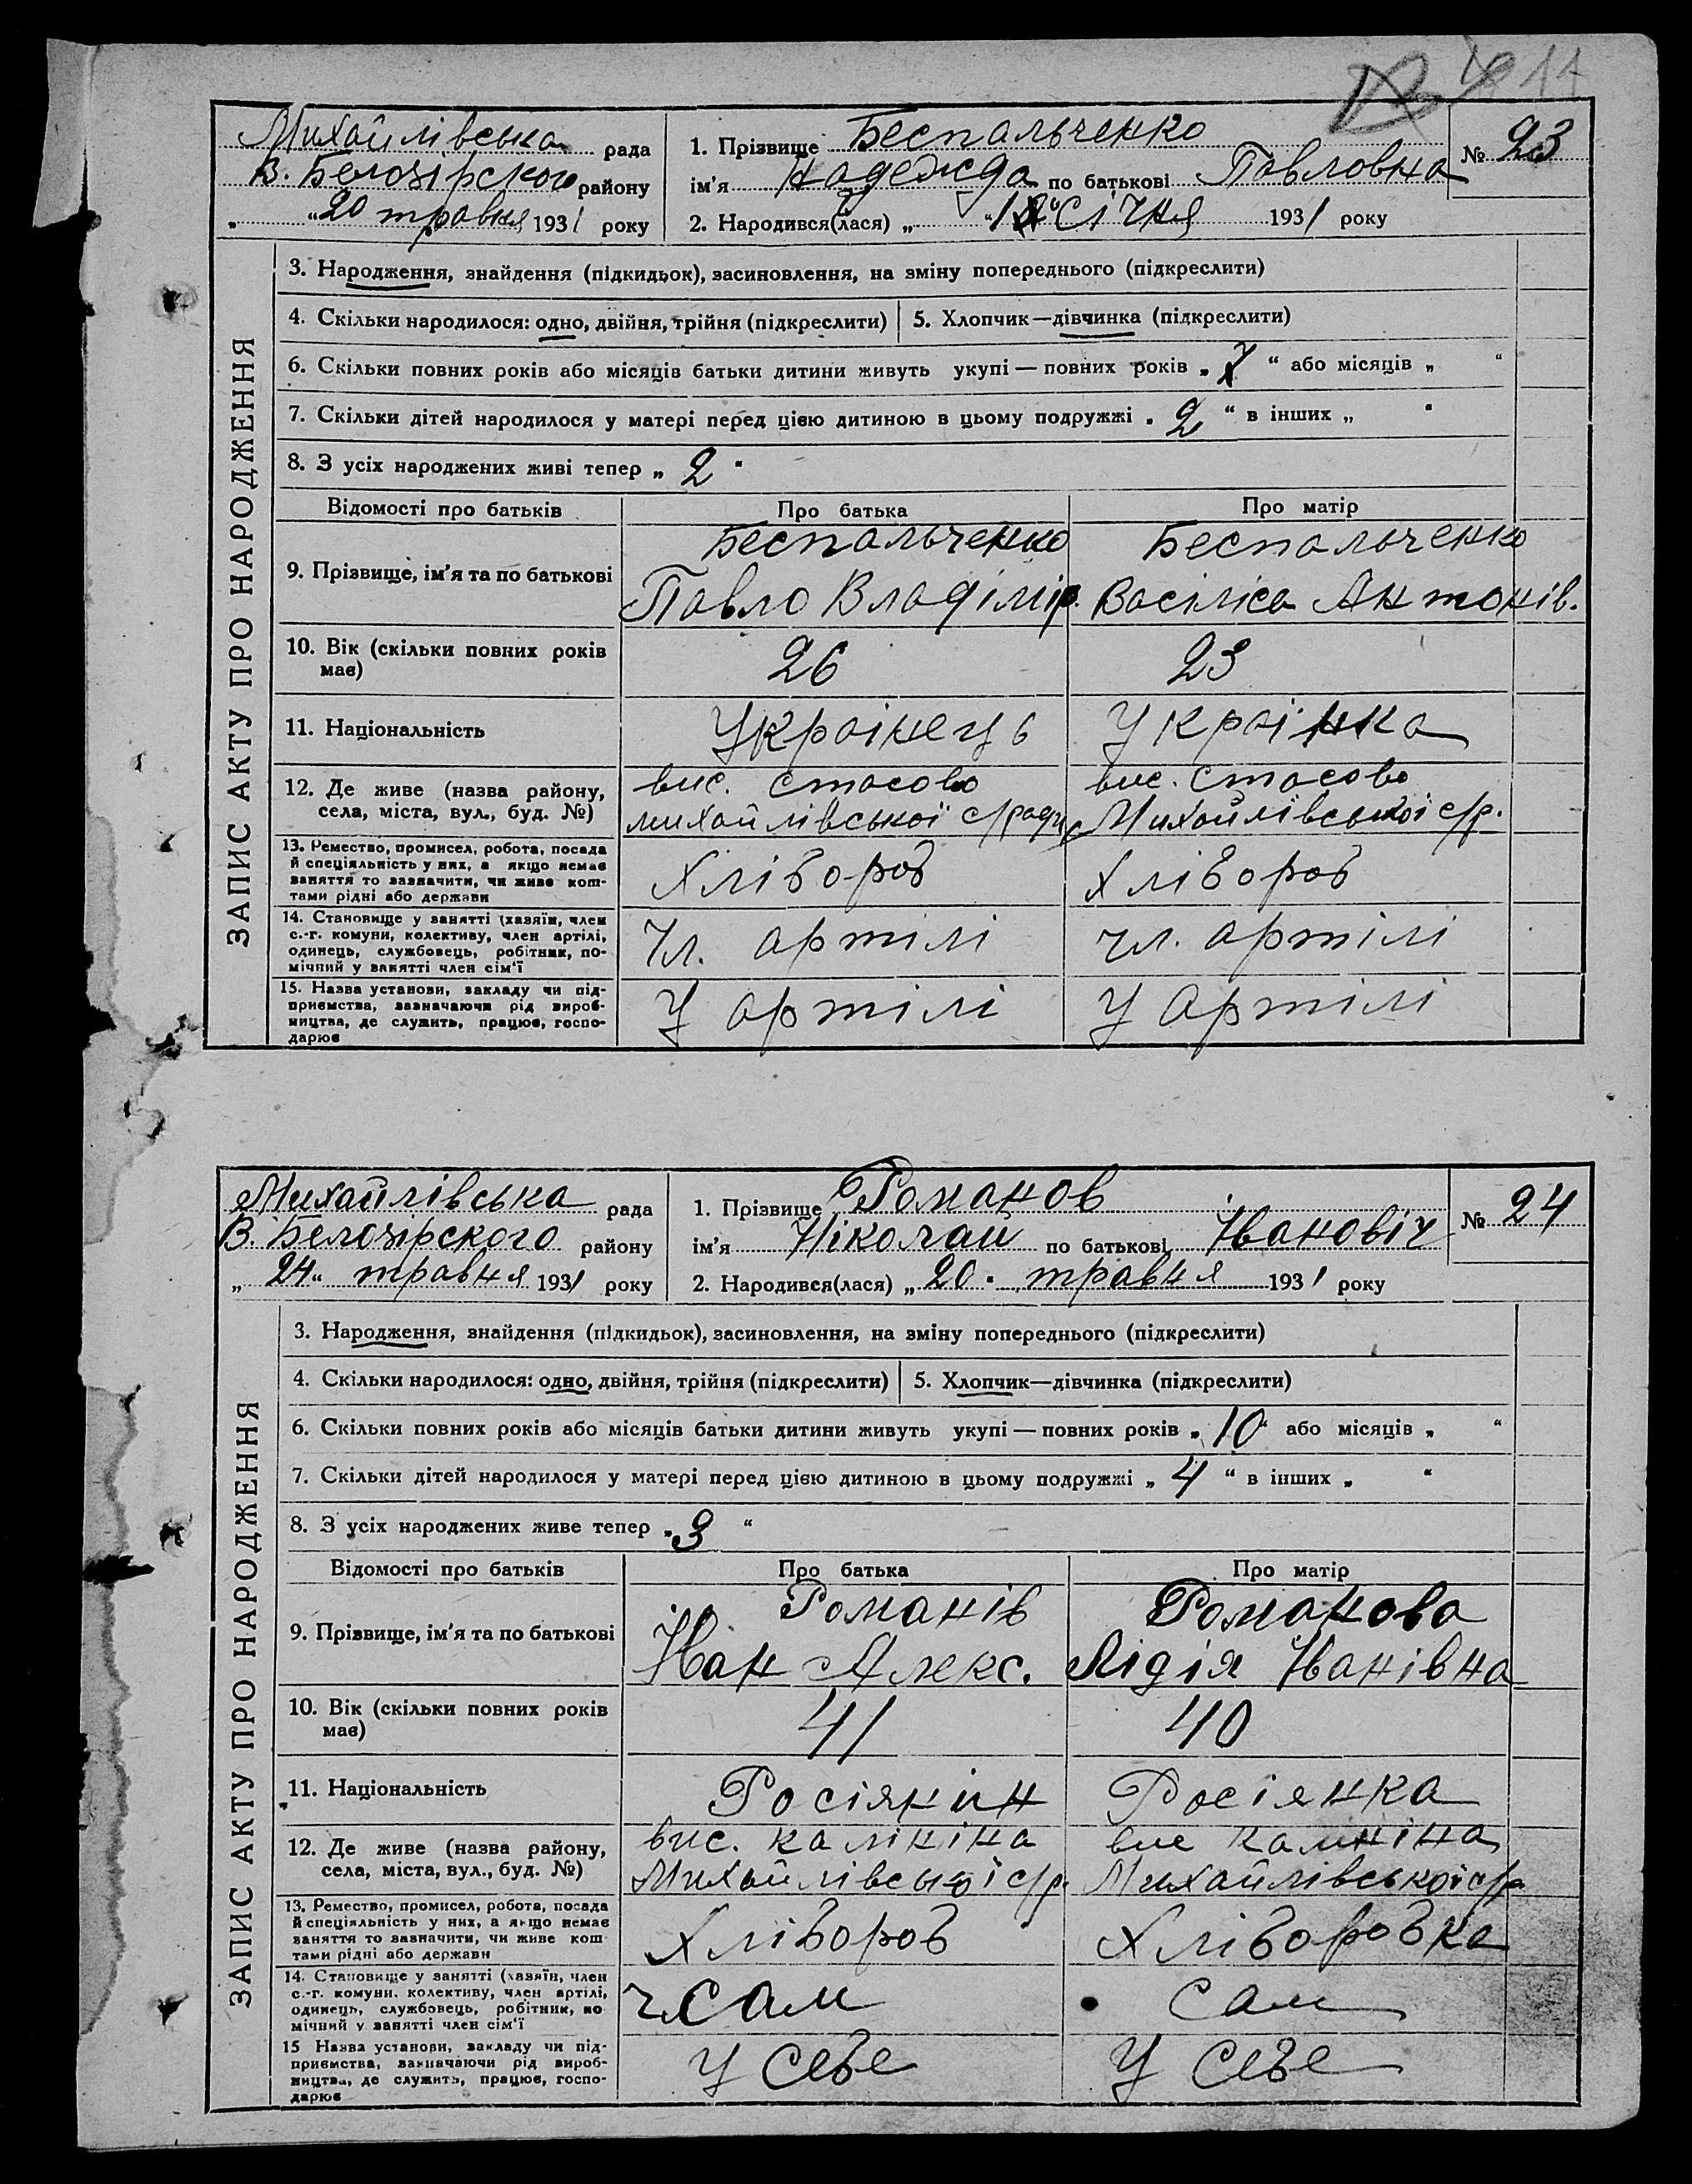 11
Михайлівська рада
1. Прізвище Беспальченко
№ 23
В. Белозірского району
ім'я Надежда по батькові Павловна
„ “ 20 травня 1931 року
2. Народився(лася) „ “ Січня 1931 року
ЗАПИС АКТУ ПРО НАРОДЖЕННЯ
3. Народження, знайдення (підкидьок), засиновлення, на зміну попереднього (підкреслити)
4. Скільки народилося: одно, двійня, трійня (підкреслити)
5. Хлопчик—дівчинка (підкреслити)
6. Скільки повних років або місяців батьки дитини живуть укупі — повних років „ “ або місяців „ “
7. Скільки дітей народилося у матері перед цією дитиною в цьому подружжі „ 2 “ в інших „ “
8. З усіх народжених живі тепер „ 2 “
Відомості про батьків
Про батька
Про матір
9. Прізвище, ім'я та по батькові
Беспальченко
Павло Владімір.
Беспальченко
Васіліса Антонів.
10. Вік (скільки повних років
має)
26
23
11. Національність
Украінець
Украінка
12. Де живе (назва району,
села, міста, вул., буд. №)
вис. Стасово
михайлівської с/ради
вис. Стасово
Михайлівської с/р.
13. Ремество, промисел, робота, посада
й спеціяльність у них, а якщо немає
заняття то зазначити, чи живе кош-
тами рідні або держави
Хлібороб
Хлібороб
14. Становище у занятті (хазяїн, член
с.-г. комуни, колективу, член артілі,
одинець, службовець, робітник, по-
мічний у занятті член сім'ї
Чл. артілі
чл. артілі
15. Назва установи, закладу чи під-
приємства, зазначаючи рід вироб-
ництва, де служить, працює, госпо-
дарює
У артілі
У артілі
Михайлівська рада
1. Прізвище Романов
№ 24
В. Белозірского району
ім'я Ніколай по батькові Івановіч
„ 24 “ травня 1931 року
2. Народився(лася) „ 20 “ травня 1931 року
ЗАПИС АКТУ ПРО НАРОДЖЕННЯ
3. Народження, знайдення (підкидьок), засиновлення, на зміну попереднього (підкреслити)
4. Скільки народилося: одно, двійня, трійня (підкреслити)
5. Хлопчик—дівчинка (підкреслити)
6. Скільки повних років або місяців батьки дитини живуть укупі — повних років „ 10 “ або місяців „ “
7. Скільки дітей народилося у матері перед цією дитиною в цьому подружжі „ 4 “ в інших „ “
8. З усіх народжених живе тепер „ 3 “
Відомості про батьків
Про батька
Про матір
9. Прізвище, ім'я та по батькові
Романів
Іван Алекс.
Романова
Лідія Іванівна
10. Вік (скільки повних років
має)
41
40
11. Національність
Росіянин
Росіянка
12. Де живе (назва району,
села, міста, вул., буд. №)
вис. Калініна
Михайлівської с/р.
вис Калініна
Михайлівської с/р
13. Ремество, промисел, робота, посада
й спеціяльність у них, а якщо немає
заняття то зазначити, чи живе кош
тами рідні або держави
Хлібороб
Хліборобка
14. Становище у занятті (хазяїн, член
с.-г. комуни, колективу, член артілі,
одинець, службовець, робітник, по
мічний у занятті член сім'ї
Сам
Сам
15 Назва установи, закладу чи під-
приємства, зазначаючи рід вироб-
ництва, де служить, працює, госпо-
дарює
У Себе
У Себе